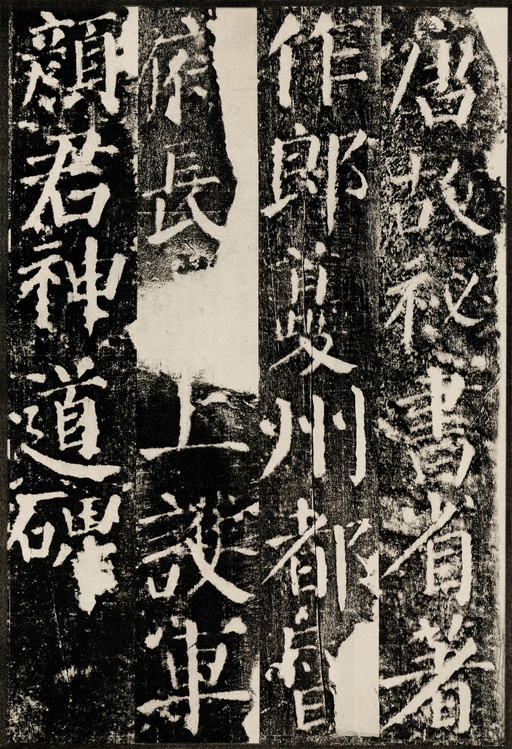 唐故祕書省著
作郎夔州都督
府長上護軍
顏君神道碑